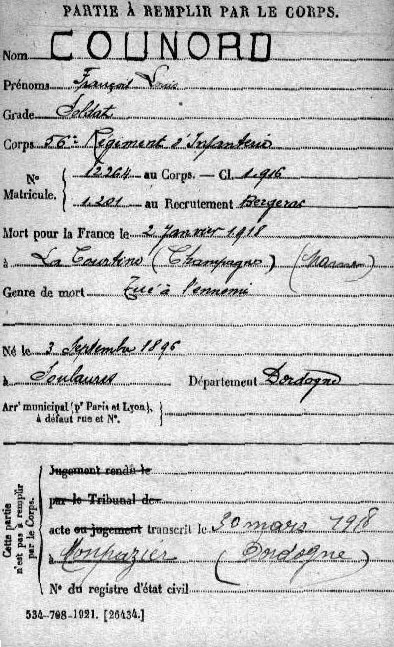 PARTIE À REMPLIR PAR LE CORPS.
Nom COUNORD
Prénoms François Louis
Grade Soldat
Corps 56e Régiment d'Infanterie
N° Matricule. 12264 au Corps. — Cl. 1916
1.201 au Recrutement Bergerac
Mort pour la France le 2 Janvier 1918
à La Courtine (Champagne) (Marne)
Genre de mort Tué à l'ennemi
Né le 3 Septembre 1896
à Soulaures Département Dordogne
Arrt municipal (pr Paris et Lyon),
à défaut rue et N°.
Cette partie n'est pas à remplir par le Corps.
Jugement rendu le
par le Tribunal de
acte ou jugement transcrit le 30 mars 1918
à Monpazier (Dordogne)
N° du registre d'état civil
534-708-1921. [26434.]